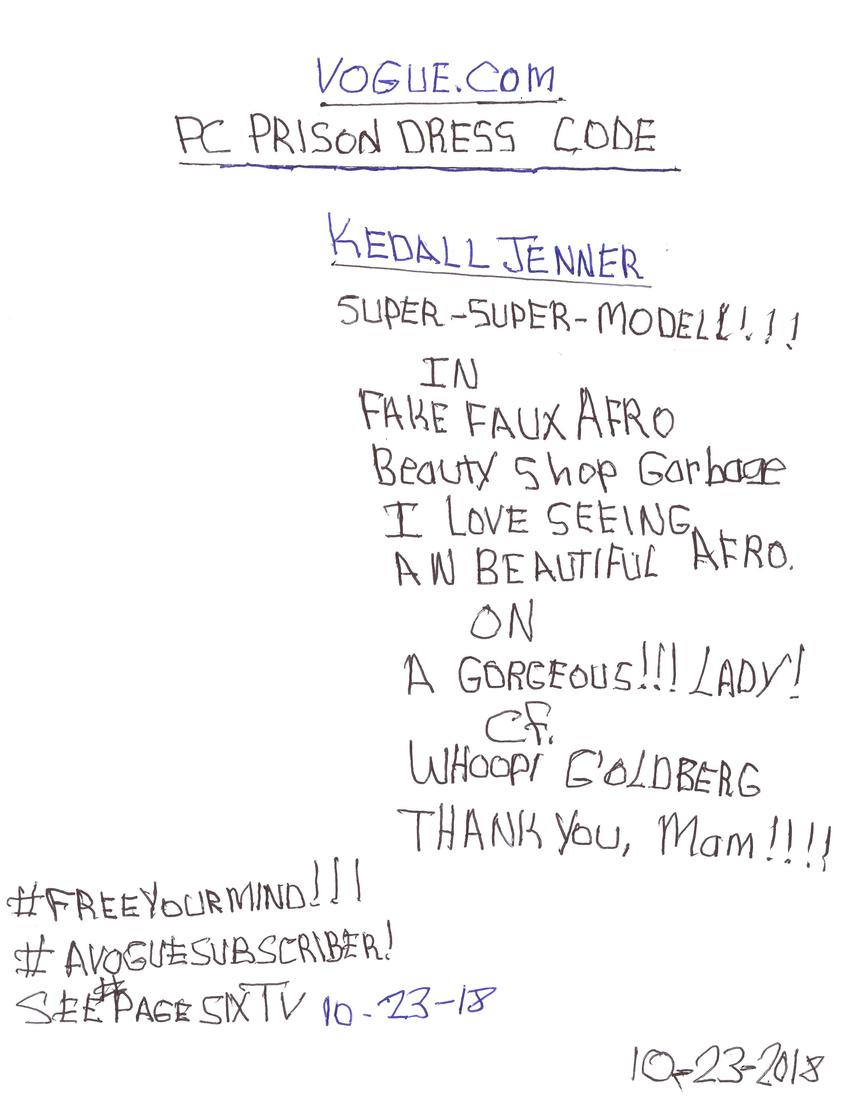 VOGUE.COM
PC PRISON DRESS CODE
KEDALL JENNER
SUPER-SUPER-MODELL!!!!
IN
FAKE FAUX AFRO
Beauty Shop Garbage
I LOVE SEEING
AN BEAUTIFUL AFRO.
ON
A GORGEOUS!!! LADY!
Cf.
WHOOPI GOLDBERG
THANK YOU, Mam!!!!
#FREEYOURMIND!!!
# AVOGUESUBSCRIBER!
SEE #PAGE SIX TV 10-23-18
10-23-2018